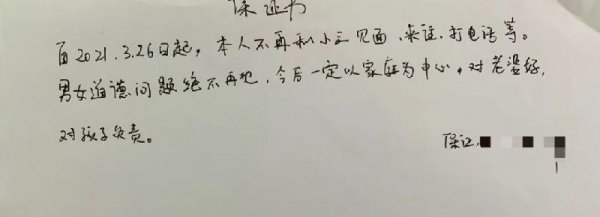 保证书
自2021.3.26日起，本人不再和小三见面、来往、打电话等。
男女道德问题绝不再犯，今后一定以家庭为中心，对老婆好，
对孩子负责。
保证